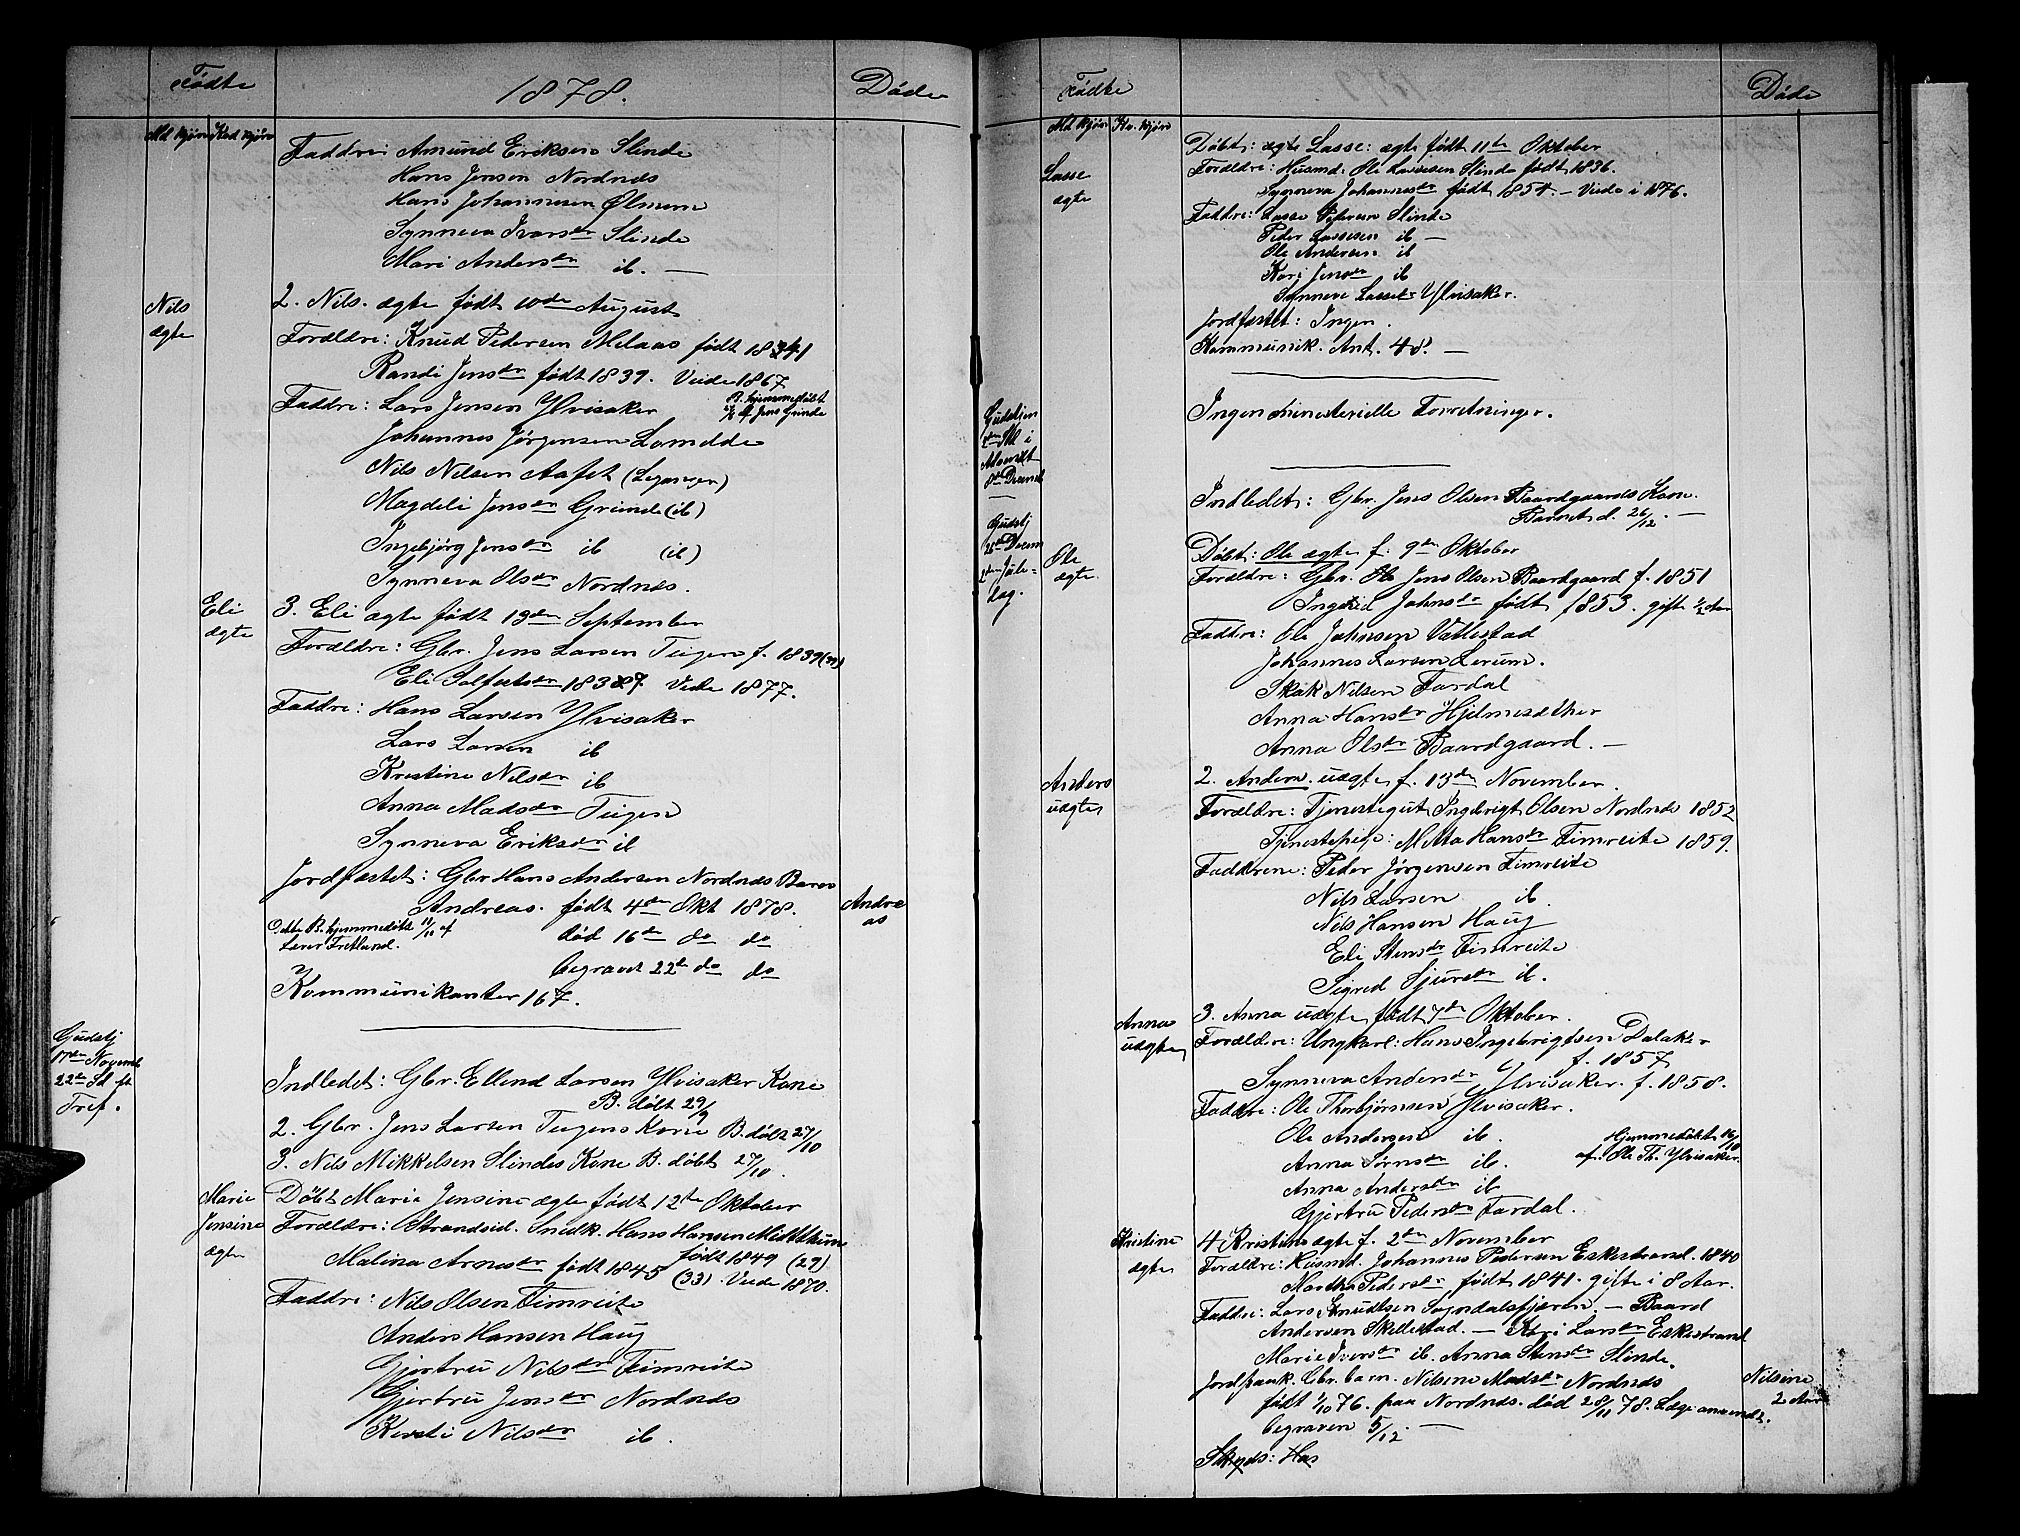 Fødte
1878.
Døde
Md kjøn Kvd kjøn
Faddre: Amund Eriksen Slinde
Hans Jensen Nordnæs
Hans Johannesen Ølmeim
Synneva Ivarsdr Slinde
Mari Andersdr ib. —
Nils
ægte
2. Nils. ægte født 10de August
Forældre: Knud Pedersen Melaas født 1841
Randi Jensdr født 1839. Viede 1867
B. hjemmedøbt
af Jens Grinde
Faddre: Lars Jensen Ylvisaker
Johannes Jørgensen Lomelde
Nils Nilsen Aafet (Leganger)
Magdeli Jensdr Grinde (ib)
Ingebjørg Jensdr ib (ib)
Synneva Olsdr Nordnæs.
Eli
ægte
3. Eli ægte født 13de September
Forældre: Gbr. Jens Larsen Tugen f. 1839 (39)
Eli Solfestsdr 1837 Viede 1877.
Faddre: Hans Larsen Ylvisaker
Lars Larsen ib
Kristine Nilsdr ib
Anna Madsdr Tugen
Synneva Eriksdr ib
Jordfæstet: Gbr Hans Andersen Nordnæs Barn
Andreas. født 4de Okt 1878.
Andre
as
Dette B. hjemmedøbt 11/11 af
Lærer Fretland.
død 16de do do
begravet 22de do do
Kommunikanter 167.
Gudstj
17de Novemb
22de Sd ft
Tref.
Indledet: Gbr. Ellend Larsen Ylvisaker Kone
B. døbt 29/9
2. Gbr. Jens Larsen Tugens Kone B. døbt 27/10
3. Nils Mikkelsen Slindes Kone B. døbt 27/10.
Marie
Jensine
ægte
Døbt Marie Jensine ægte født 12te Oktober
Forældre: Strandsid. Snedk. Hans Hansen Midtthun
født 1849 (29)
Malina Arnesdr født 1845 (33). Viede 1870.
Faddre: Nils Olsen Fimreite
Anders Hansen Haug
Gjertru Nilsdr Fimreite
Gjertru Jensdr Nordnæs
Kirsti Nilsdr ib.
Fødte
1879
Døde
Md kjøn Kv. kjøn
Lasse
ægte
Døbt: ægte Lasse: ægte født 11te Oktober
Forældre: Husmd. Ole Lassesen Slinde født 1836.
Synneva Johannesdr født 1854. — Viede i 1876.
Faddre: Lasse Pedersen Slinde
Peder Lassesen ib —
Ole Andersen ib
Kari Jensdr ib
Synneve Lassedr Ylvisaker.
Jordfæstet: Ingen.
Kommunik. Ant. 48. —
Gudstjen
2den Sd i
Advent
8de Decemb
Ingen ministerielle Forretninger.
Gudstj
26de Decem
2den Jule-
dag.
Indledet: Gbr. Jens Olsen Baardgaards Kone.
Barnet d. 26/12. —
Ole
ægte
Døbt: Ole ægte f. 9de Oktober
Forældre: Gbr. Jens Olsen Baardgaard f. 1851
Ingrid Johnsdr født 1853. gifte ½ Aar
Faddre: Ole Johnsen Vallestad
Johannes Larsen Lerum.
Skak Nilsen Fardal
Anna Hansdr Hjelmesæther
Anna Olsdr Baardgaard. —
Anders
uægte
2. Anders. uægte f. 13de November.
Forældre: Tjenestegut Ingebrigt Olsen Nordnæs 1852
Tjenestepige: Metta Hansdr Fimreite 1859.
Faddrene: Peder Jørgensen Fimreite
Nils Larsen ib.
Nils Hansen Haug
Eli Stensdr Fimreite
Sigrid Sjursdr ib.
Anna
uægte
3. Anna uægte født 7de Oktober.
Forældre: Ungkarl: Hans Ingebrigtsen Dalaker
f. 1857
Synneva Andersdr Ylvisaker. f. 1858.
Faddre: Ole Thorbjørnsen Ylvisaker.
Ole Andersen ib.
Hjemmedøbt 16/10
af: Ole Th. Ylvisaker
Anna Sørnsdr ib.
Anna Andersdr ib
Gjertru Pedersdr Fardal.
Kristine
ægte
4 Kristine ægte f. 2den November
Forældre: Husmd. Johannes Pedersen Eskestrand. 1840
Martha Pedersdr født 1841. gifte i 8 Aar.
Faddre: Lars Knudtsen Sogndalsfjæren. — Baard
Andersen Skellestad. — Kari Larsdr Eskestrand
Marie Iversdr ib. Anna Stensdr Slinde.
Jordfæstk. Gbr. barn. Nilsine Madsdr Nordnæs
Nilsine
2 Aar
født 1/10 76. paa Nordnæs. død 28/11 78. Læge anvendt.
begraven 5/12. —
Skyds: Has